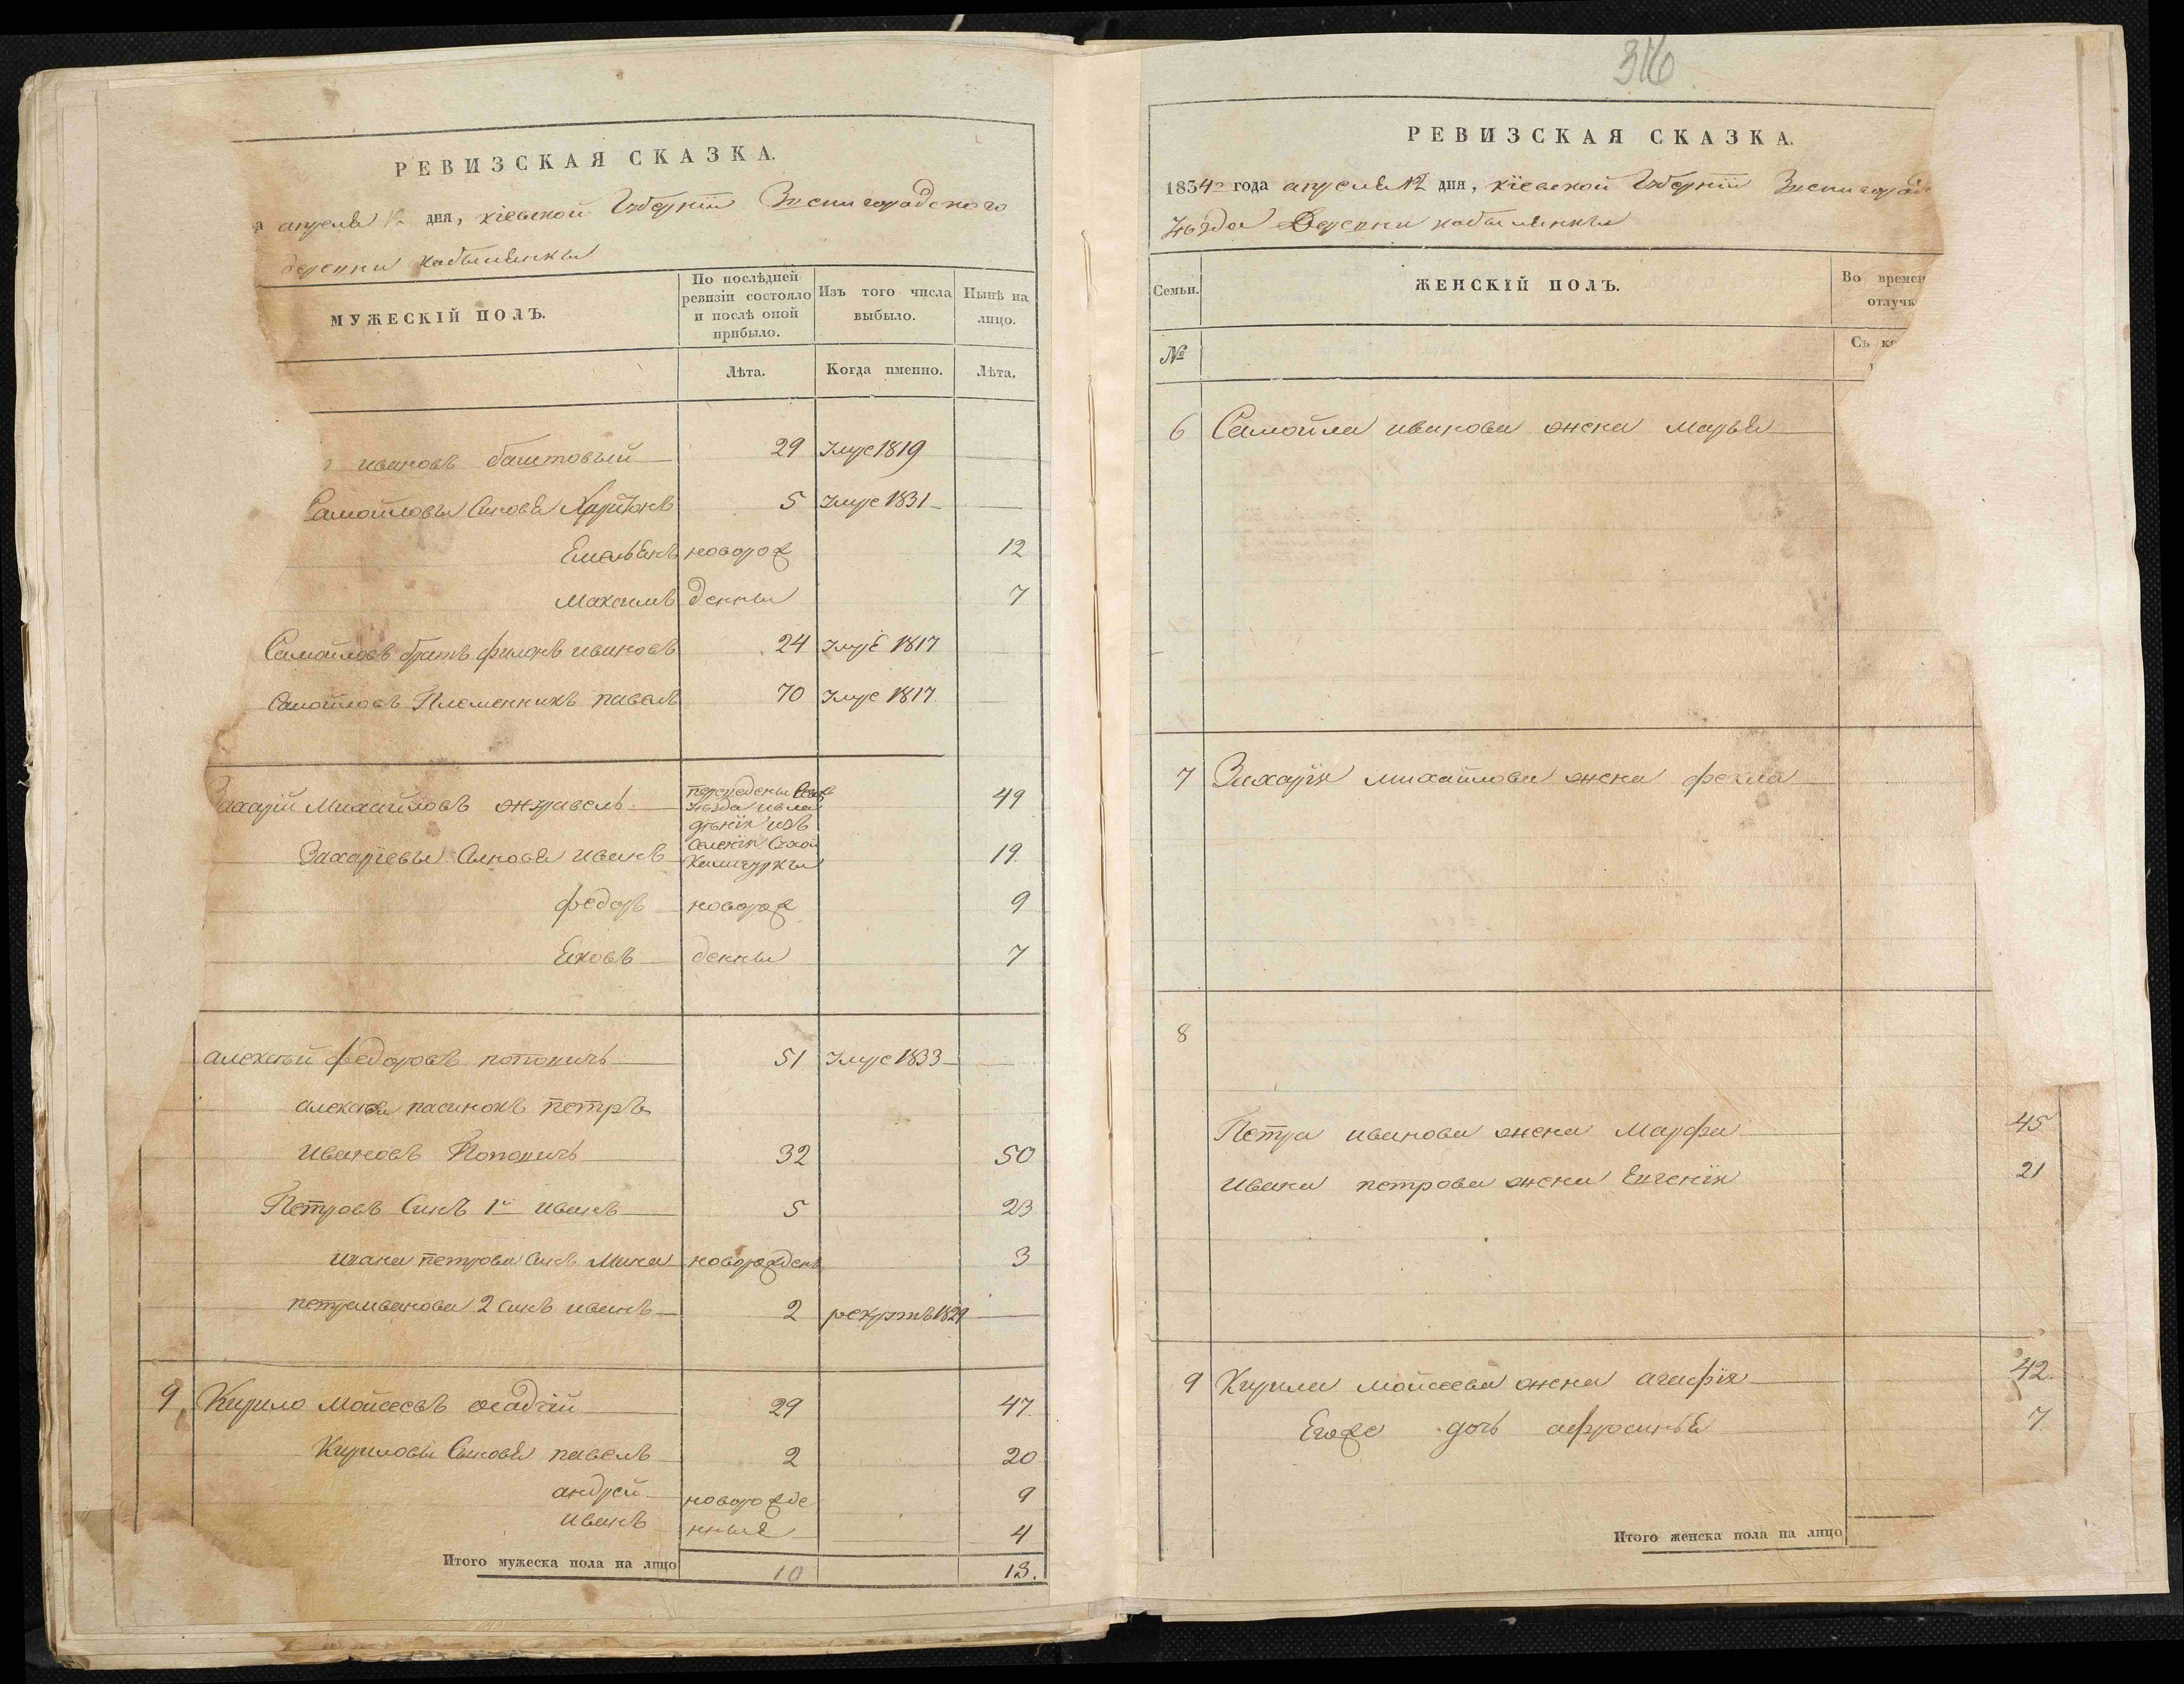 РЕВИЗСКАЯ СКАЗКА.
апреля 12 дня, кіевской Губерніи Звенигородского
деревни кобылянки
МУЖЕСКІЙ ПОЛЪ.
По послѣдней ревизіи состояло и послѣ оной прибыло.
Изъ того числа выбыло.
Нынѣ на лицо.
Лѣта.
Когда именно.
Лѣта.
ивановъ баштовый 29 Умре 1819
Самойловы Синовя Харитонъ 5 Умре 1831
Емельянъ новорож 12
Максимъ денны 7
Самойловъ братъ филонъ ивановъ 24 Умре 1817
Самойловъ Племенникъ павелъ 70 Умре 1817
Захарій Михайловъ журавель переведены 49
уезда ивла
дѣнія изъ
Захаріевы Синовя иванъ Селенія 19
федоръ новорож 9
Яковъ денны 7
алексѣй федоровъ 51 Умре 1833
алексѣя пасинокъ петръ
ивановъ 32 50
Петровъ Синъ 1й иванъ 5 23
ивана петрова синъ Мина новорожденъ 3
петра иванова 2 синъ иванъ 2 рекрутъ 1829
9 Кирило Мойсеевъ осадчій 29 47
Кириловы Синовя павелъ 2 20
андрей новорожде 9
иванъ нные 4
Итого мужеска пола на лицо 10 13.
316
РЕВИЗСКАЯ СКАЗКА.
1834го года апреля 12 дня, кіевской Губерніи Звенигородс
уѣзда Деревни кобылянки
Семьи.
ЖЕНСКІЙ ПОЛЪ.
Во времен
отлучк
№
Съ ко
6 Самойла иванова жена марья
7 Захарія михайлова жена фекла
8
Петра иванова жена Марфа 45
ивана петрова жена Евгенія 21
9 Кирила мойсеева жена агафія 42
Егоже дочь афросинья 7
Итого женска пола на лицо